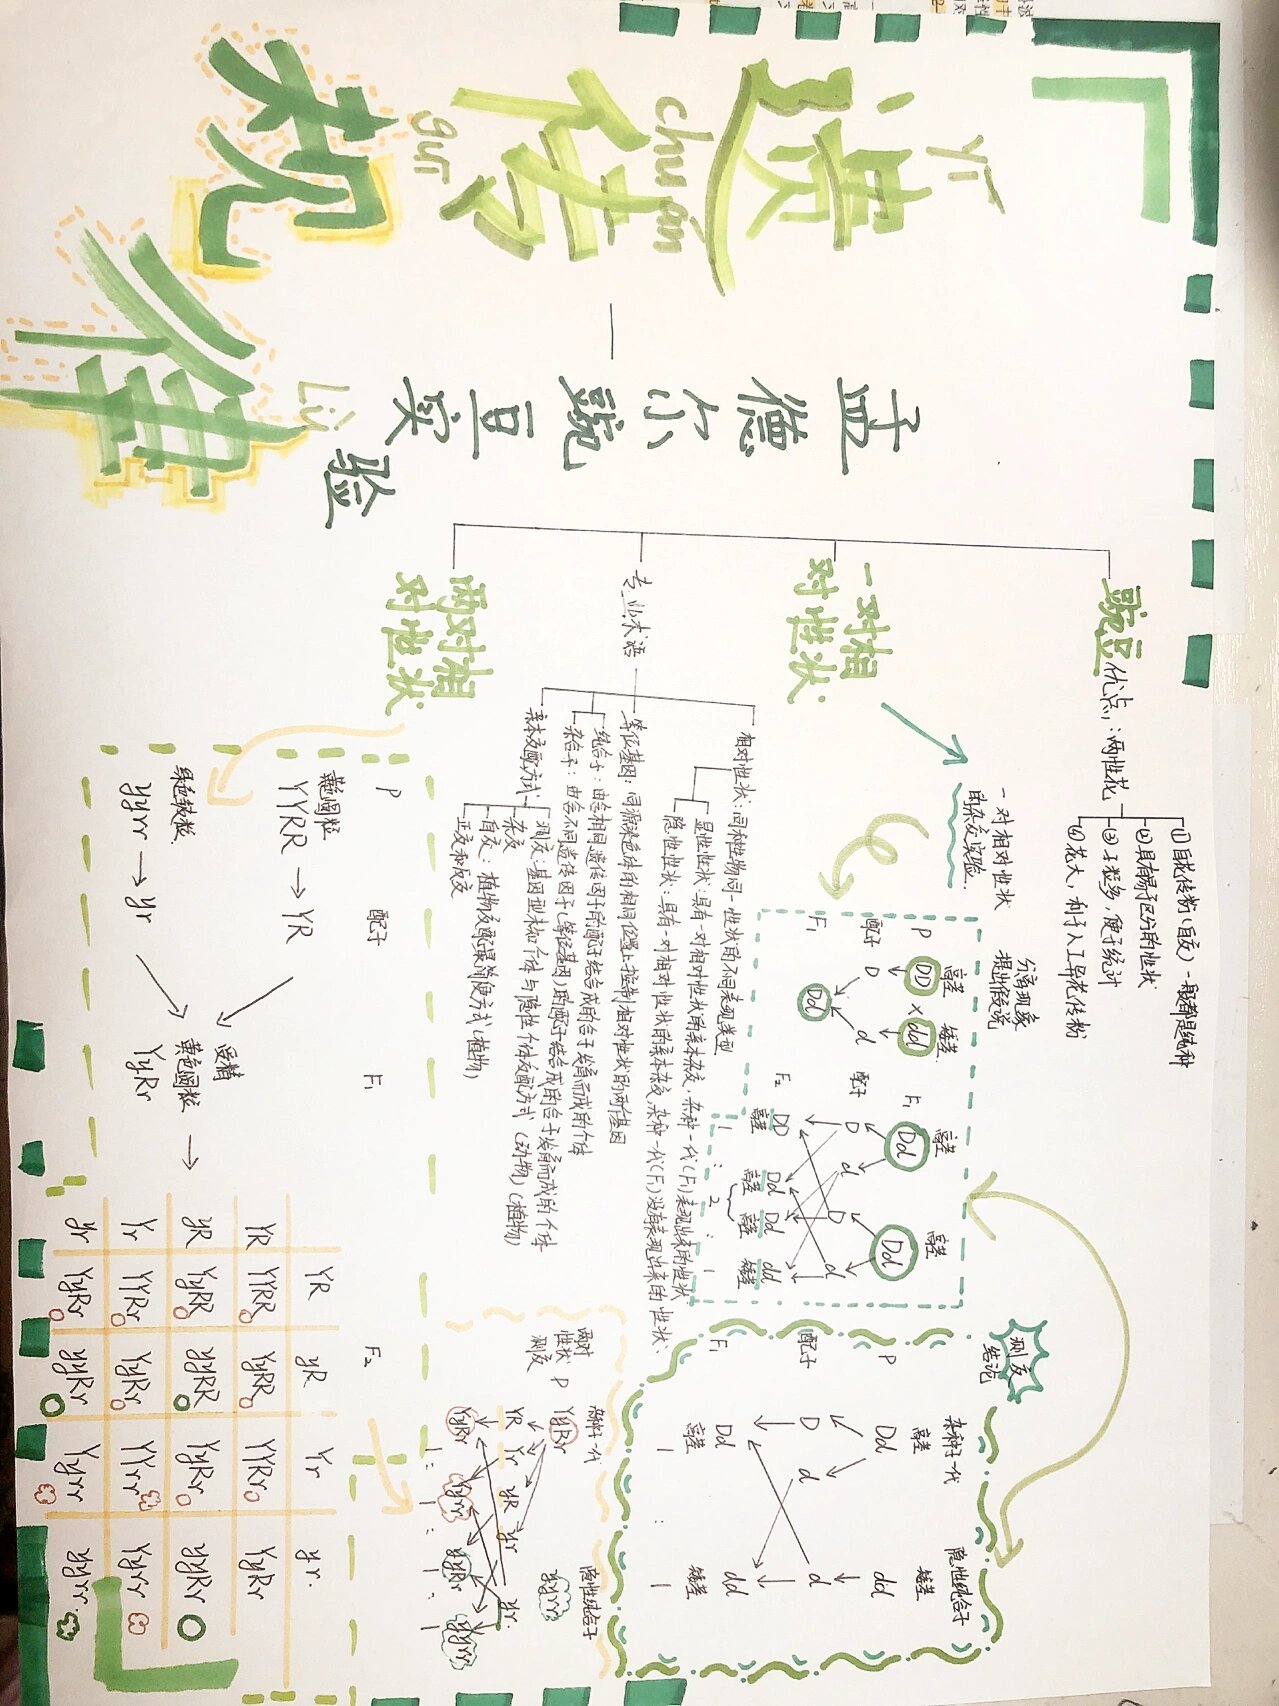 遗传
规律
yí
chuán
guī
Lǜ
— 孟德尔豌豆实验
豌豆 优点：两性花
①自花传粉（自交）一般都是纯种
②具有易于区分的性状
③子粒多，便于统计
④花大，利于人工异花传粉
一对相
对性状
一对相对性状
的杂交实验
分离现象
提出假说
高茎 矮茎
P DD × dd
配子 D d
F₁ Dd
高茎 高茎
F₁ Dd Dd
配子 D d D d
F₂ DD Dd Dd dd
高茎 高茎 高茎 矮茎
1 : 2 : 1
测交
结论
杂种子一代 隐性纯合子
高茎 矮茎
P Dd dd
配子 D d d
F₁ Dd dd
高茎 矮茎
1 : 1
专业术语
相对性状：同种生物同一性状的不同表现类型
显性性状：具有一对相对性状的亲本杂交，杂种一代（F₁）表现出来的性状
隐性性状：具有一对相对性状的亲本杂交，杂种一代（F₁）没有表现出来的性状
等位基因：同源染色体的相同位置上控制相对性状的两基因
纯合子：由含相同遗传因子的配子结合成的合子发育而成的个体
杂合子：由含不同遗传因子（等位基因）的配子结合成的合子发育而成的个体
亲本交配方式
测交：基因型未知个体与隐性个体交配方式（动物）（植物）
杂交
自交：植物交配最简便方式（植物）
正交和反交
两对相
对性状
P 配子 F₁ F₂
黄色圆粒
YYRR → YR
受精
黄色圆粒
YyRr →
绿色皱粒
yyrr → yr
YR yR Yr yr
YR YYRR YyRR YYRr YyRr
yR YyRR yyRR YyRr yyRr
Yr YYRr YyRr YYrr Yyrr
yr YyRr yyRr Yyrr yyrr
两对
性状
测交
杂种子一代 隐性纯合子
P YyRr yyrr
YR Yr yR yr yr
YyRr Yyrr yyRr yyrr
1 : 1 : 1 : 1